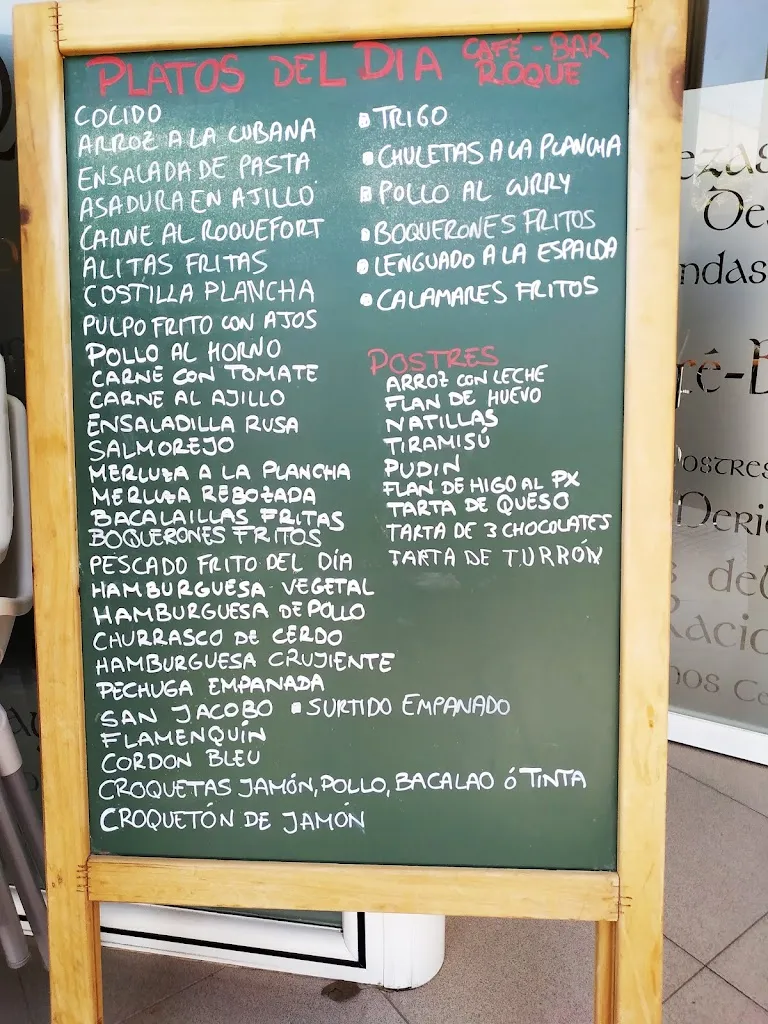 PLATOS DEL DIA CAFÉ-BAR ROQUE
COCIDO
ARROZ A LA CUBANA
ENSALADA DE PASTA
ASADURA EN AJILLO
CARNE AL ROQUEFORT
ALITAS FRITAS
COSTILLA PLANCHA
PULPO FRITO CON AJOS
POLLO AL HORNO
CARNE CON TOMATE
CARNE AL AJILLO
ENSALADILLA RUSA
SALMOREJO
MERLUZA A LA PLANCHA
MERLUZA REBOZADA
BACALAILLAS FRITAS
BOQUERONES FRITOS
PESCADO FRITO DEL DÍA
HAMBURGUESA VEGETAL
HAMBURGUESA DE POLLO
CHURRASCO DE CERDO
HAMBURGUESA CRUJIENTE
PECHUGA EMPANADA
SAN JACOBO ▪ SURTIDO EMPANADO
FLAMENQUÍN
CORDON BLEU
CROQUETAS JAMÓN, POLLO, BACALAO ó TINTA
CROQUETÓN DE JAMÓN
▪ TRIGO
▪ CHULETAS A LA PLANCHA
▪ POLLO AL CURRY
▪ BOQUERONES FRITOS
▪ LENGUADO A LA ESPALDA
▪ CALAMARES FRITOS
POSTRES
ARROZ CON LECHE
FLAN DE HUEVO
NATILLAS
TIRAMISÚ
PUDIN
FLAN DE HIGO AL PX
TARTA DE QUESO
TARTA DE 3 CHOCOLATES
TARTA DE TURRÓN
ezas
De
ndas
é-B
Postres
Meri
s del
Racio
nos Ca